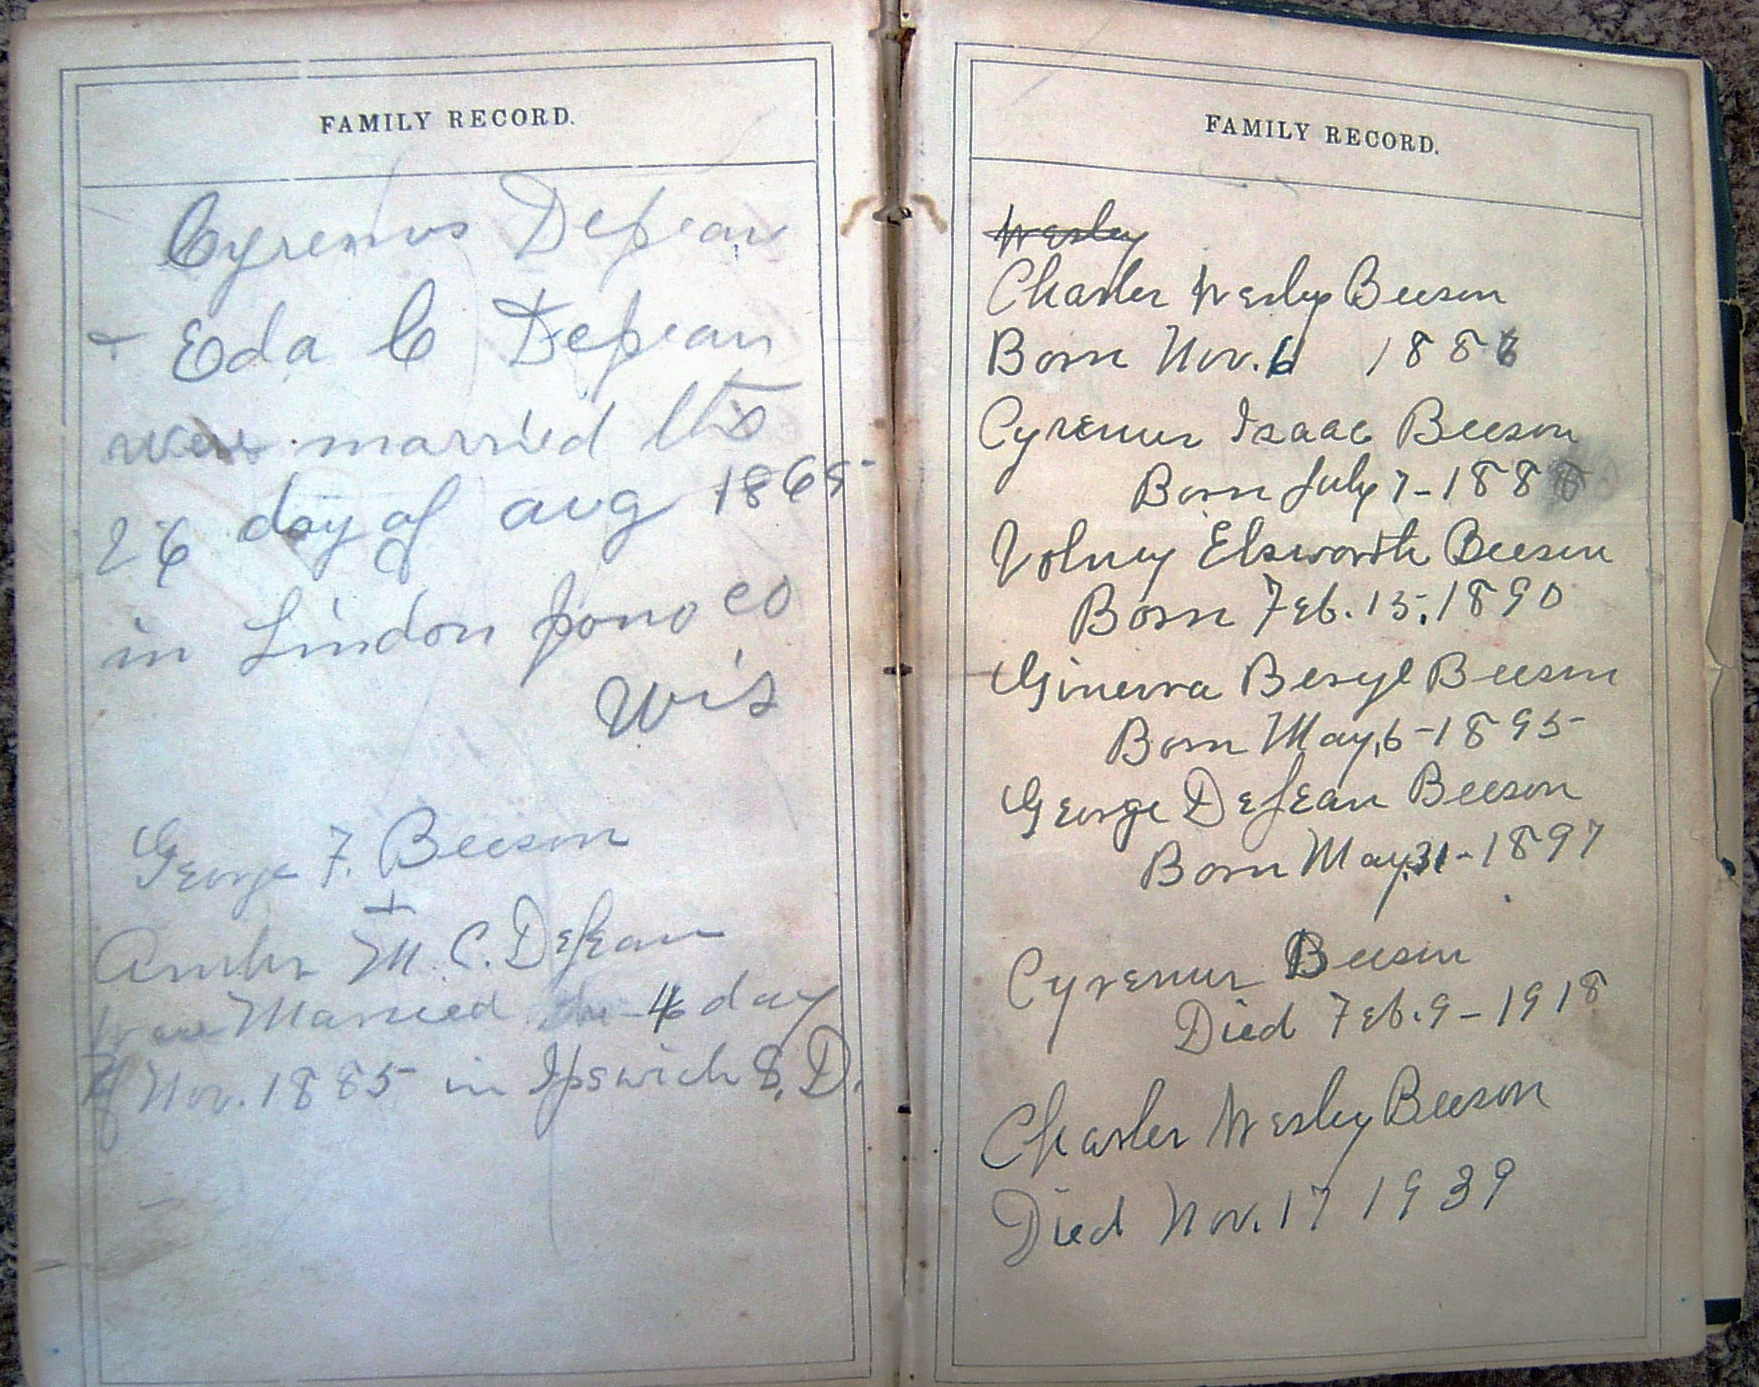 FAMILY RECORD.
Cyrenus Dejean
+ Eda C Dejean
were married the
26 day of aug 1865
in Lindon jono co
Wis
George F. Beeson
+
M. C. DeJean
were Married the 4 day
of Nov. 1885 in Ipswich S. D.
FAMILY RECORD.
Wesley
Charles Wesley Beeson
Born Nov. 6 1886
Cyrenus Isaac Beeson
Born July 7-188
Volney Elsworth Beeson
Born Feb. 15, 1890
Ginevra Beryl Beeson
Born May, 6-1895
George DeJean Beeson
Born May, 31-1897
Cyrenus Beeson
Died Feb. 9-1918
Charles Wesley Beeson
Died Nov. 17 1939